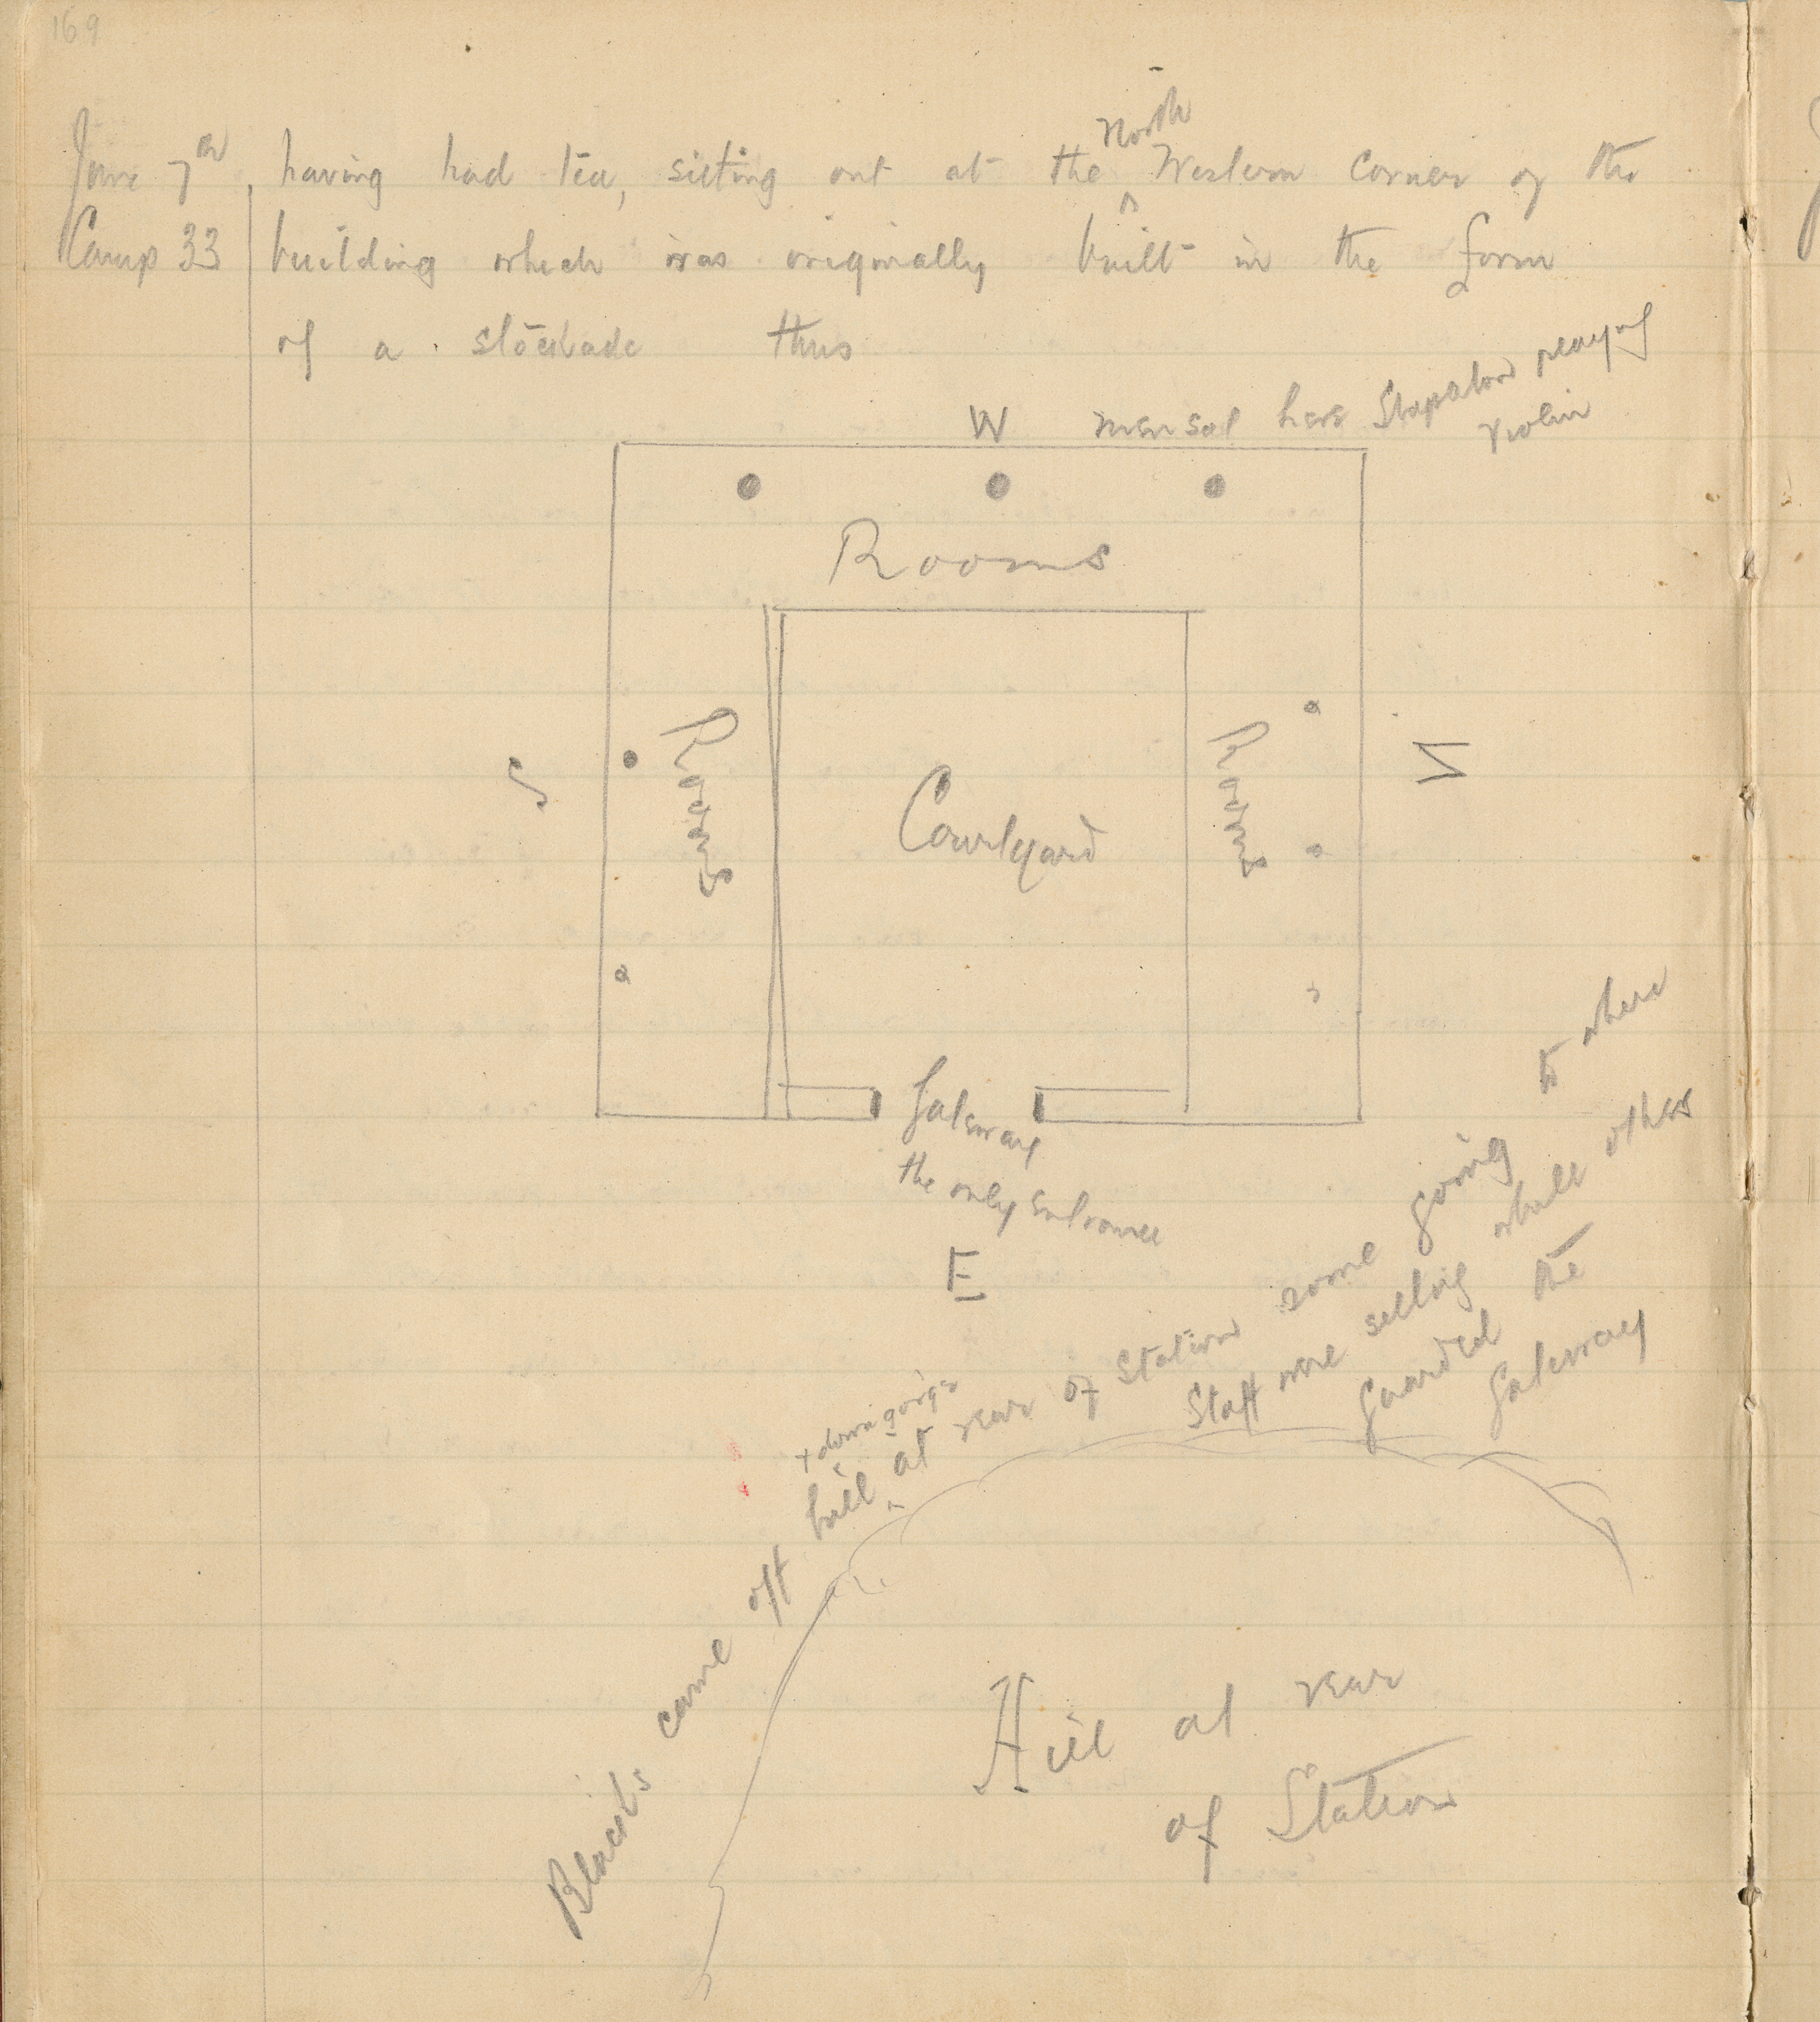 169
north
June 7th, having had tea, sitting out at the ^ Western corner of the
Camp 33 building which was originally built in the form
of a stockade thus
W men sat here Stapleton playing
violin
Rooms
S
Rooms
Courtyard
Rooms
N
Gateway
the only entrance
E
+ down gorge
Blacks came off hill ^ at rear of Station some going to where
Staff were sitting while others
guarded the
Gateway
Hill at rear
of Station